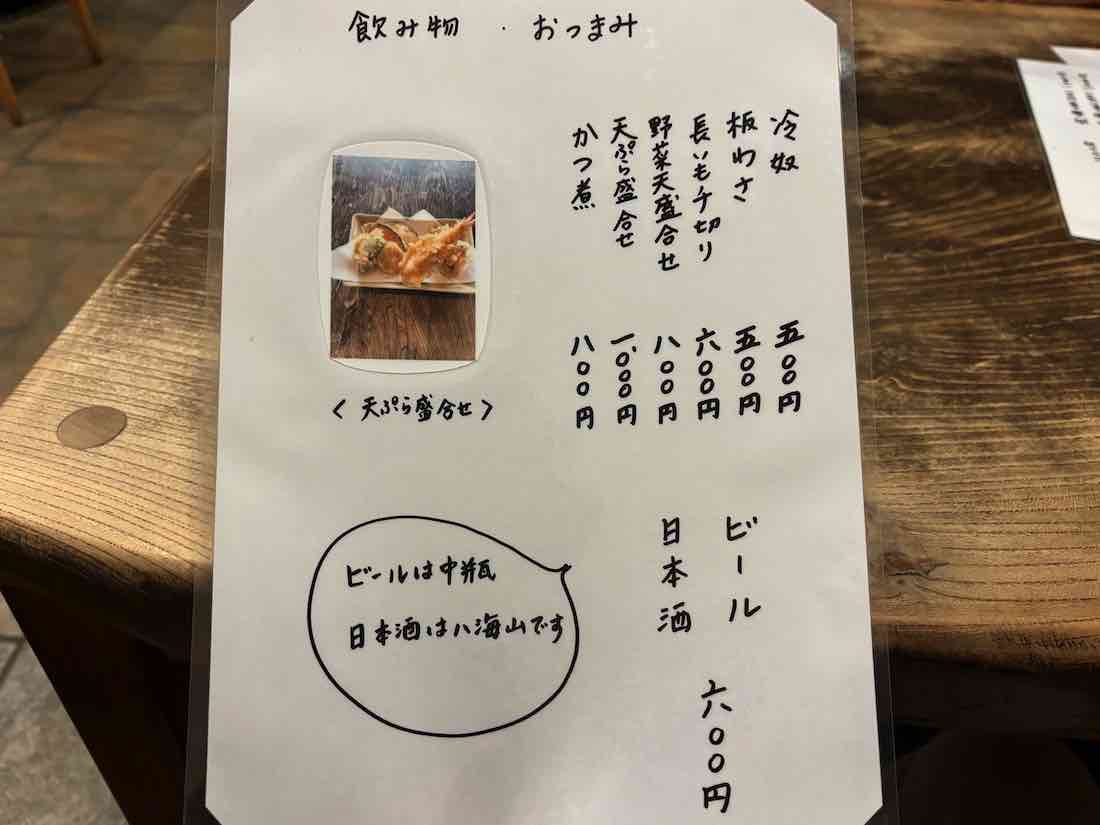 飲み物 ・ おつまみ
冷奴 五〇〇円
板わさ 五〇〇円
長いも千切り 六〇〇円
野菜天盛合せ 八〇〇円
天ぷら盛合せ 一、〇〇〇円
かつ煮 八〇〇円
<天ぷら盛合せ>
ビール
日本酒
六〇〇円
ビールは中瓶
日本酒は八海山です